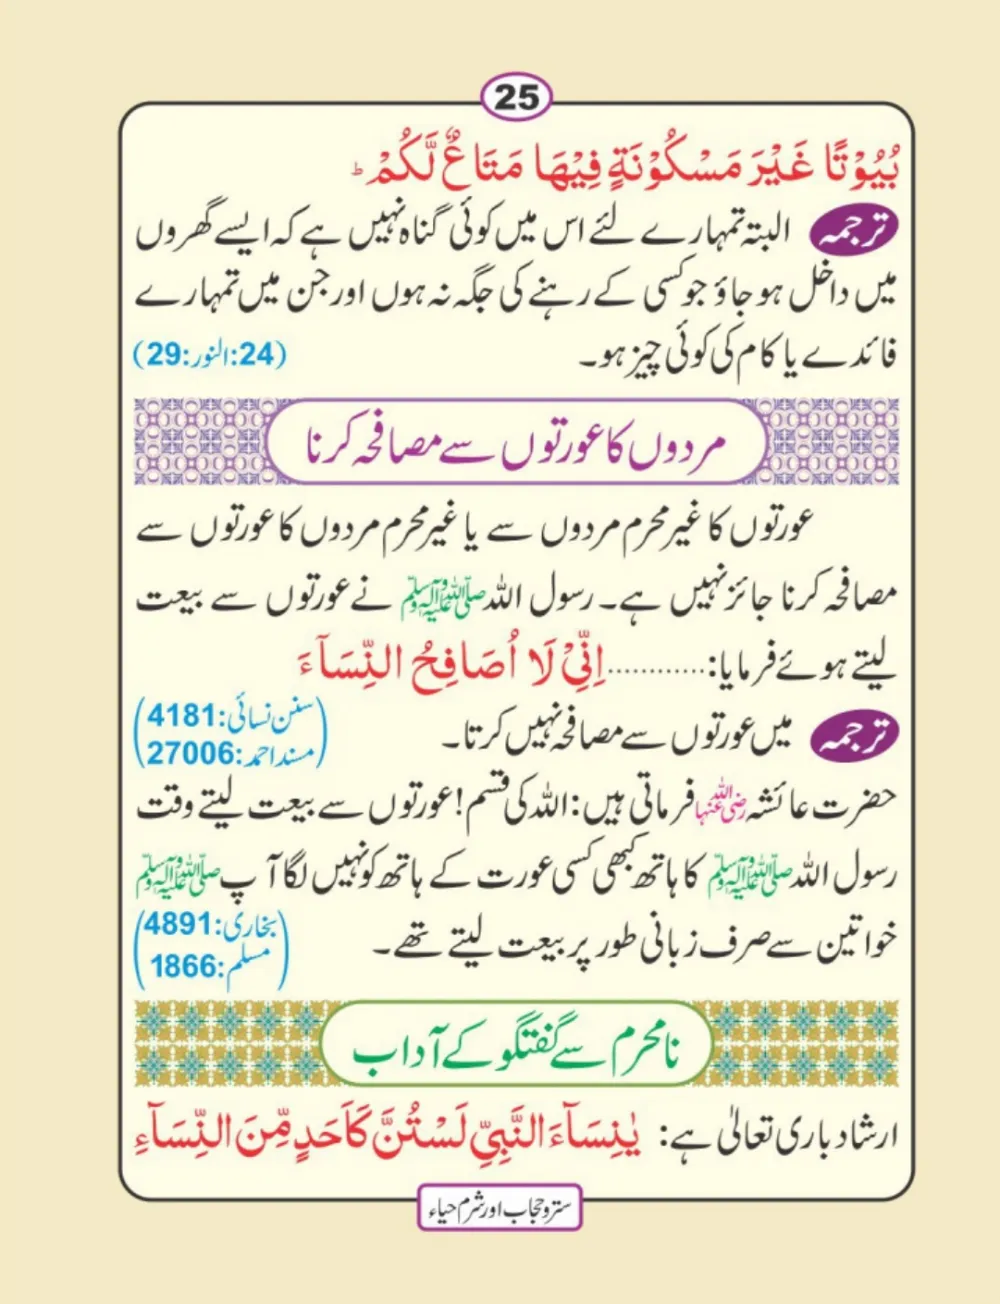 25
بُيُوْتًا غَيْرَ مَسْكُوْنَةٍ فِيْهَا مَتَاعٌ لَّكُمْ ؕ
ترجمہ البتہ تمہارے لئے اس میں کوئی گناہ نہیں ہے کہ ایسے گھروں
میں داخل ہو جاؤ جو کسی کے رہنے کی جگہ نہ ہوں اور جن میں تمہارے
فائدے یا کام کی کوئی چیز ہو۔ (24:النور:29)
مردوں کا عورتوں سے مصافحہ کرنا
عورتوں کا غیر محرم مردوں سے یا غیر محرم مردوں کا عورتوں سے
مصافحہ کرنا جائز نہیں ہے۔ رسول اللہ ﷺ نے عورتوں سے بیعت
لیتے ہوئے فرمایا:............اِنِّيْ لَا اُصَافِحُ النِّسَآءَ
ترجمہ میں عورتوں سے مصافحہ نہیں کرتا۔ (سنن نسائی:4181
مسند احمد:27006)
حضرت عائشہ رضی اللہ عنہا فرماتی ہیں: اللہ کی قسم! عورتوں سے بیعت لیتے وقت
رسول اللہ ﷺ کا ہاتھ کبھی کسی عورت کے ہاتھ کو نہیں لگا آپ ﷺ
خواتین سے صرف زبانی طور پر بیعت لیتے تھے۔ (بخاری:4891
مسلم:1866)
نامحرم سے گفتگو کے آداب
ارشاد باری تعالیٰ ہے: يٰنِسَآءَ النَّبِيِّ لَسْتُنَّ كَاَحَدٍ مِّنَ النِّسَآءِ
ستر و حجاب اور شرم حیاء